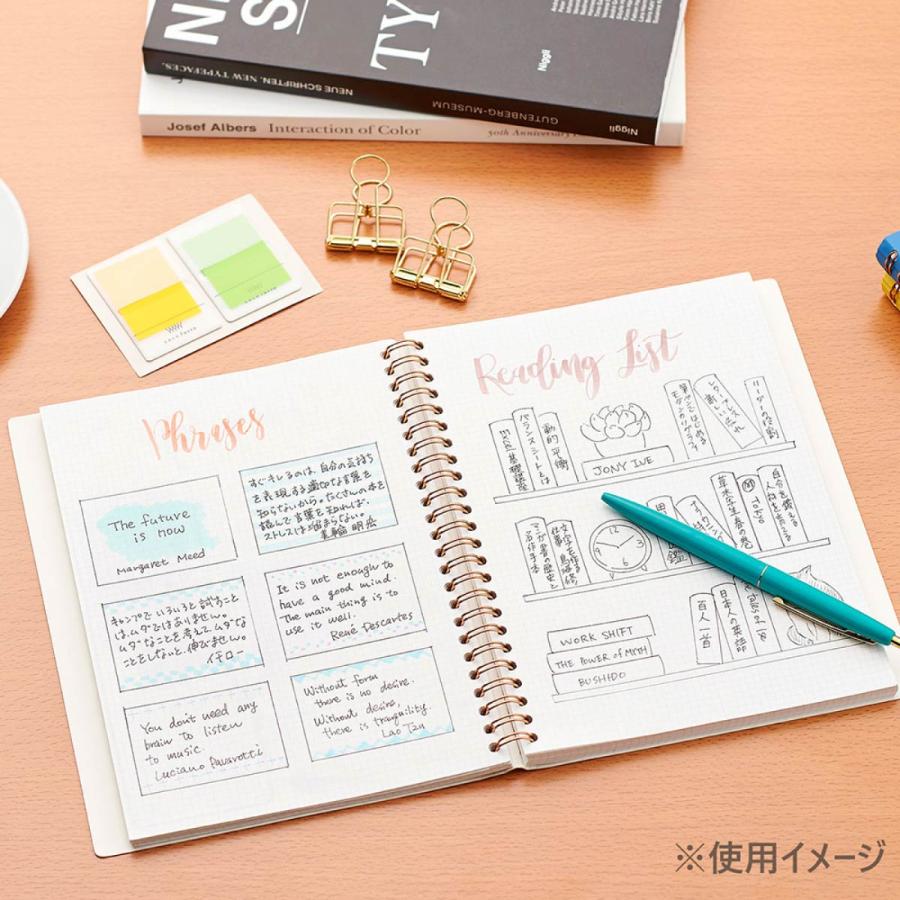 NEUE SCHRIFTEN. NEW TYPEFACES.
GUTENBERG-MUSEUM
Niggli
Niggli
TY
Josef Albers Interaction of Color
50th Anniversary
Phrases
The future
is now
Margaret Meed
すぐキレるのは、自分の気持ち
を表現する適切な言葉を
知らないから。たくさんの本を
読んで言葉を知れば、
ストレスは溜まらない。
美輪 明宏
キャンプでいろいろと試すこと
は、ムダではありません。
ムダなことを考えて、ムダな
ことをしないと、伸びません。
イチロー
It is not enough to
have a good mind.
The main thing is to
use it well.
René Descartes
You don't need any
brain to listen
to music.
Luciano Pavarotti
Without form
there is no desire.
Without desire,
there is tranquility.
Lao Tzu
Reading List
バランスシートとは
動的平衡
JONY IVE
リーダーの役割
マンガ書の歴史と
名作手本
自分を鍛える
人材を育てる
百人一首
日本人の英語
WORK SHIFT
THE POWER of MYTH
BUSHIDO
※使用イメージ